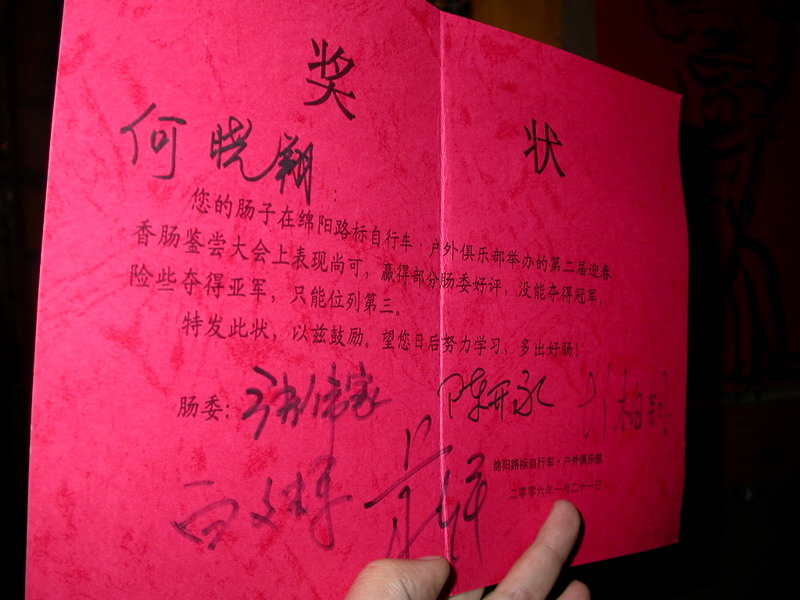 奖 状
何晓翔：
您的肠子在绵阳路标自行车·户外俱乐部举办的第二届迎春
香肠鉴尝大会上表现尚可，赢得部分肠委好评，没能夺得冠军，
险些夺得亚军，只能位列第三。
特发此状，以兹鼓励。望您日后努力学习，多出好肠！
肠委：
陈开永
绵阳路标自行车·户外俱乐部
二零零六年一月二十一日